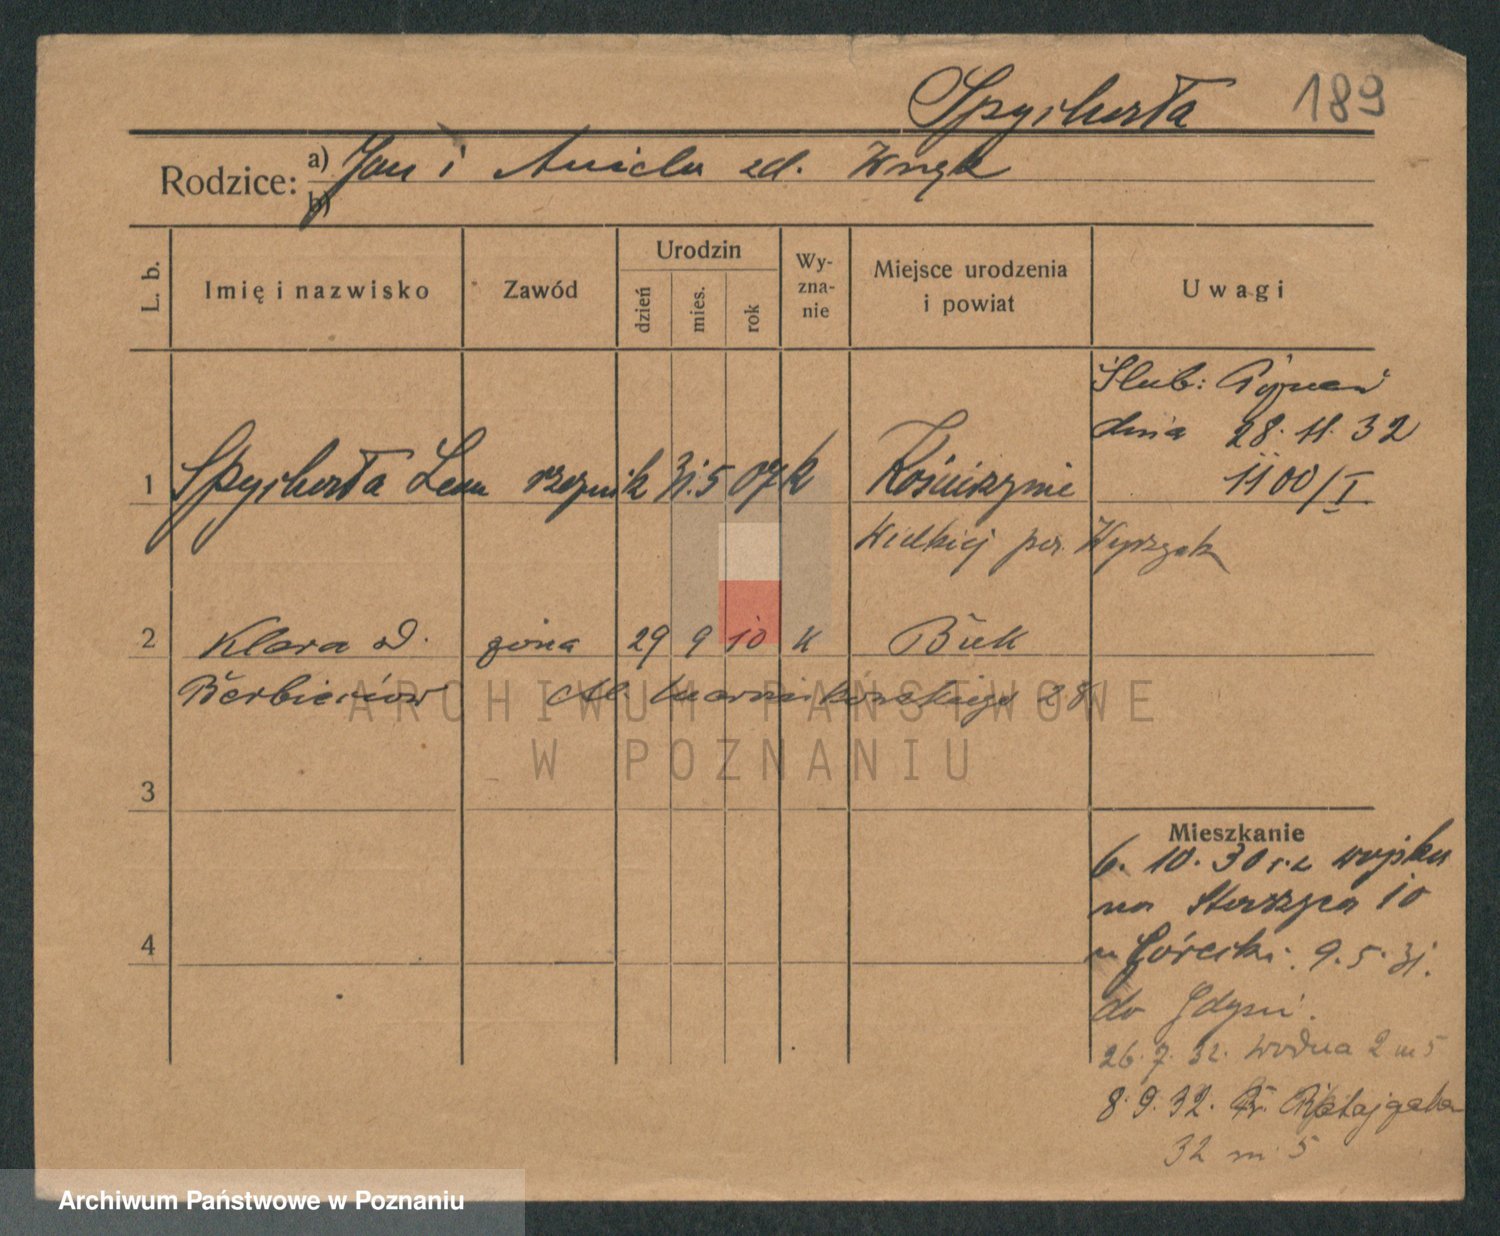 Spychała 189
Rodzice: a) Jan i Aniela zd. Wnęk
b)
L. b. Imię i nazwisko Zawód Urodzin dzień mies. rok Wy-zna-nie Miejsce urodzenia i powiat Uwagi
Ślub: Poznań
dnia 28. 11. 32
1100/I
1 Spychała Leon rzeźnik 31. 5 07 k Kościerzynie
Wielkiej pow. Wyrzysk
2 Klara zd. żona 29 9 10 k Buk
Al. Marcinkowskiego 28
3
Mieszkanie
6. 10. 30 r. z wojska
na Strzelecka 10
u Górecki. 9. 5. 31.
4
do Gdyni.
26. 7. 32. Wodna 2 m 5
8. 9. 32. Fr. Ratajczaka
32 m. 5
ARCHIWUM PAŃSTWOWE
W POZNANIU
Archiwum Państwowe w Poznaniu